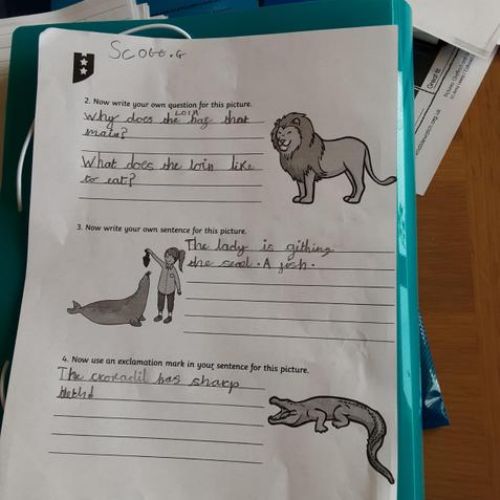 2. Now write your own question for this picture.
Why does the loin has that
main?
What does the loin like
to eat?
3. Now write your own sentence for this picture.
The lady is githing
the seal. A fish.
4. Now use an exclamation mark in your sentence for this picture.
The crokadil has sharp